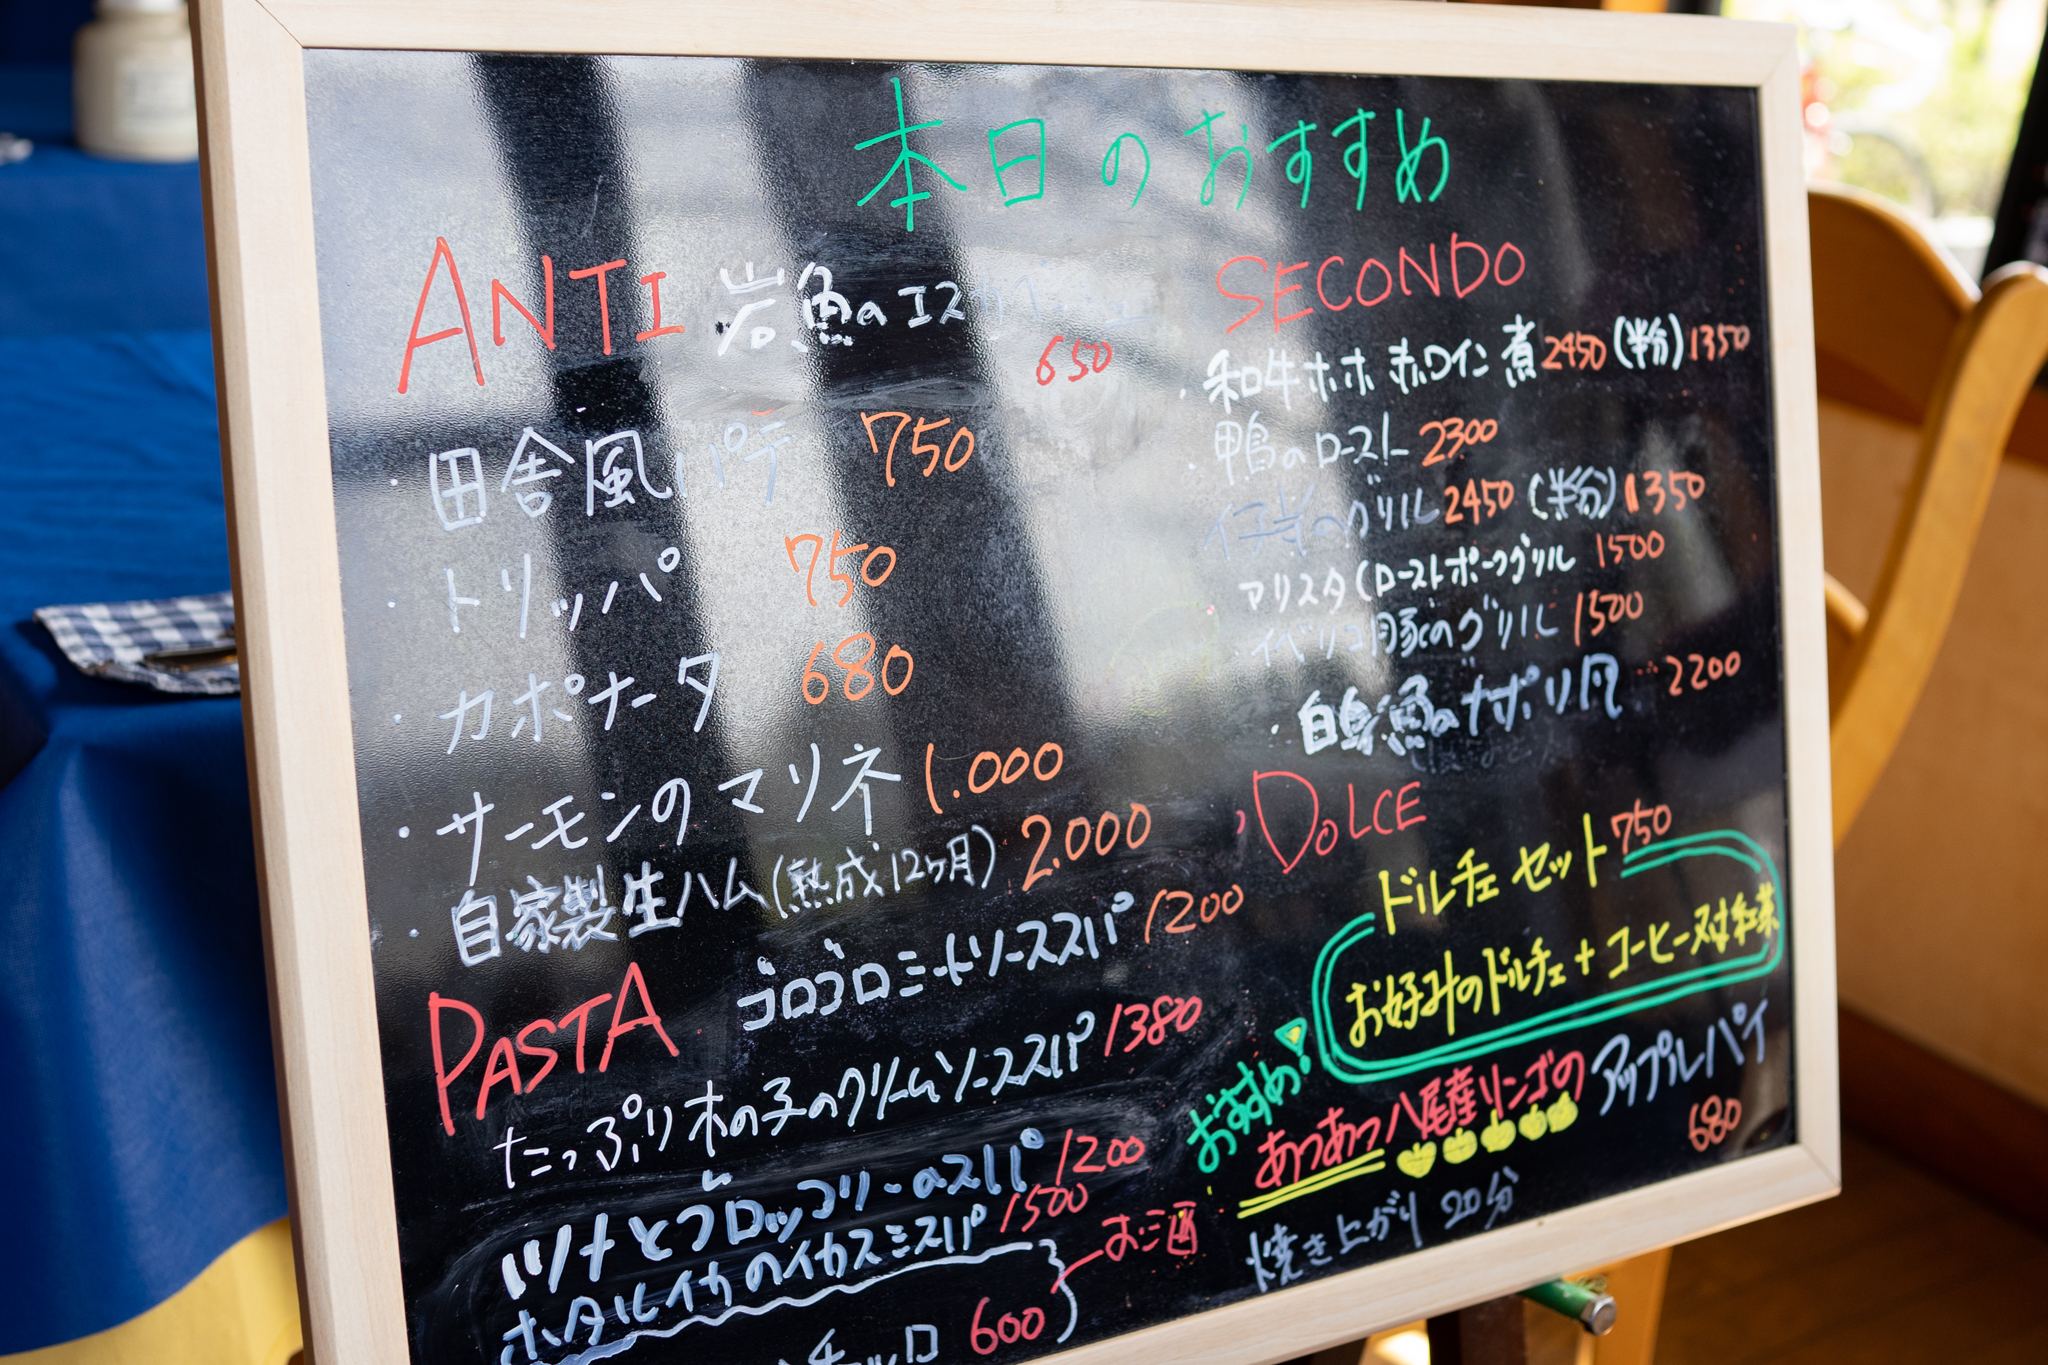 本日のおすすめ
ANTI 岩魚のエスカベーチェ
650
・田舎風パテ 750
・トリッパ 750
・カポナータ 680
・サーモンのマリネ 1.000
・自家製生ハム(熟成12ヶ月) 2.000
PASTA ゴロゴロミートソーススパ 1200
たっぷり木の子のクリームソーススパ 1380
ツナとブロッコリーのスパ 1200
ホタルイカのイカスミスパ 1500
お酒
600
SECONDO
・和牛ホホ赤ワイン煮 2450 (半分) 1350
・鴨のロースト 2300
仔羊のグリル 2450 (半分) 1350
アリスタ(ローストポークグリル 1500
・イベリコ豚のグリル 1500
・白身魚のナポリ風 2200
DOLCE
ドルチェセット 750
お好みのドルチェ+コーヒー又は紅茶
おすすめ!
あつあつ八尾産リンゴのアップルパイ
680
焼き上がり 20分